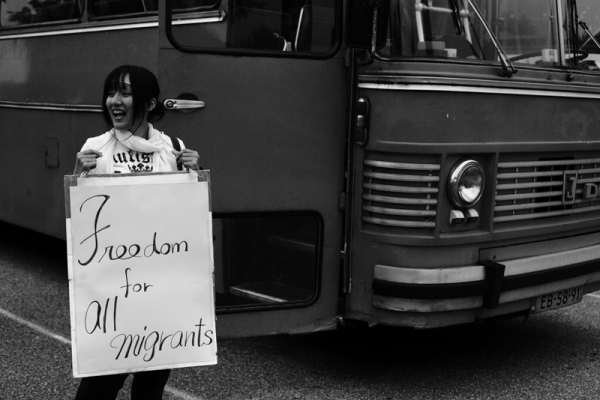 Freedom
for
all
migrants
EB-58-91